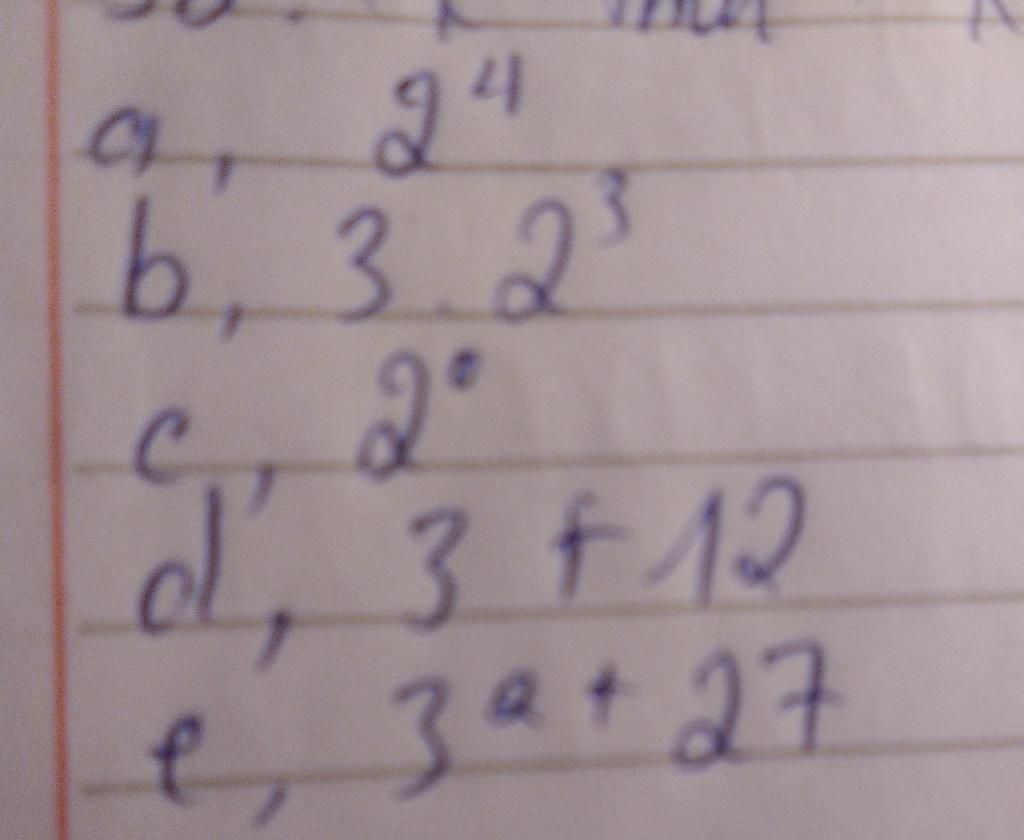 a, 2⁴
b, 3 . 2³
c, 2⁰
d, 3 + 12
e, 3² + 27